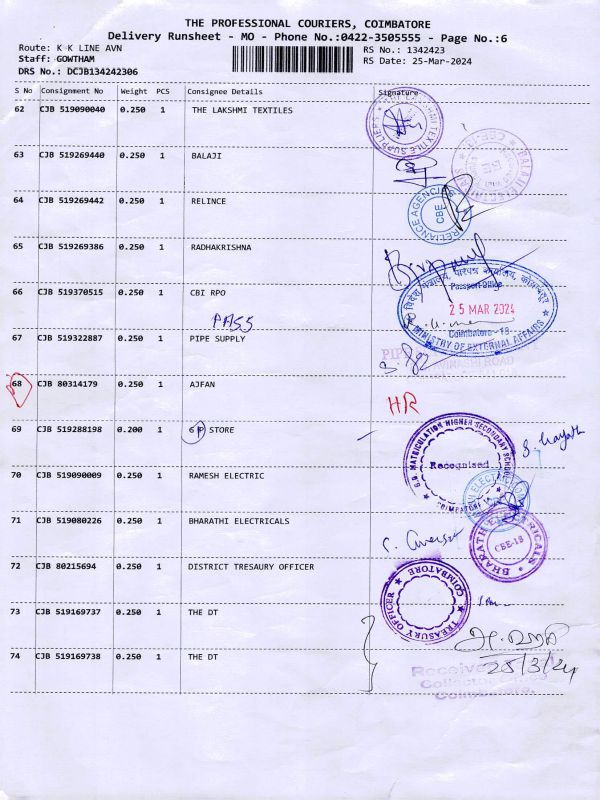 THE PROFESSIONAL COURIERS, COIMBATORE
Delivery Runsheet - MO - Phone No.:0422-3505555 - Page No.:6
Route: K K LINE AVN
RS No.: 1342423
Staff: GOWTHAM
RS Date: 25-Mar-2024
DRS No.: DCJB134242306
S No Consignment No Weight PCS Consignee Details Signature
62 CJB 519090040 0.250 1 THE LAKSHMI TEXTILES
63 CJB 519269440 0.250 1 BALAJI
64 CJB 519269442 0.250 1 RELINCE
RELIANCE AGENCIES
CBE
65 CJB 519269386 0.250 1 RADHAKRISHNA
66 CJB 519370515 0.250 1 CBI RPO
PASS
Passport Office
25 MAR 2024
Coimbatore - 18
MINISTRY OF EXTERNAL AFFAIRS
67 CJB 519322887 0.250 1 PIPE SUPPLY
68 CJB 80314179 0.250 1 AJFAN
HR
69 CJB 519288198 0.200 1 G P STORE
MATRICULATION HIGHER SECONDARY SCHOOL
Recognised
COIMBATORE
70 CJB 519090009 0.250 1 RAMESH ELECTRIC
71 CJB 519080226 0.250 1 BHARATHI ELECTRICALS
BHARATH ELECTRICALS
CBE-18
72 CJB 80215694 0.250 1 DISTRICT TRESAURY OFFICER
TREASURY OFFICER
COIMBATORE
73 CJB 519169737 0.250 1 THE DT
74 CJB 519169738 0.250 1 THE DT
25/3/24